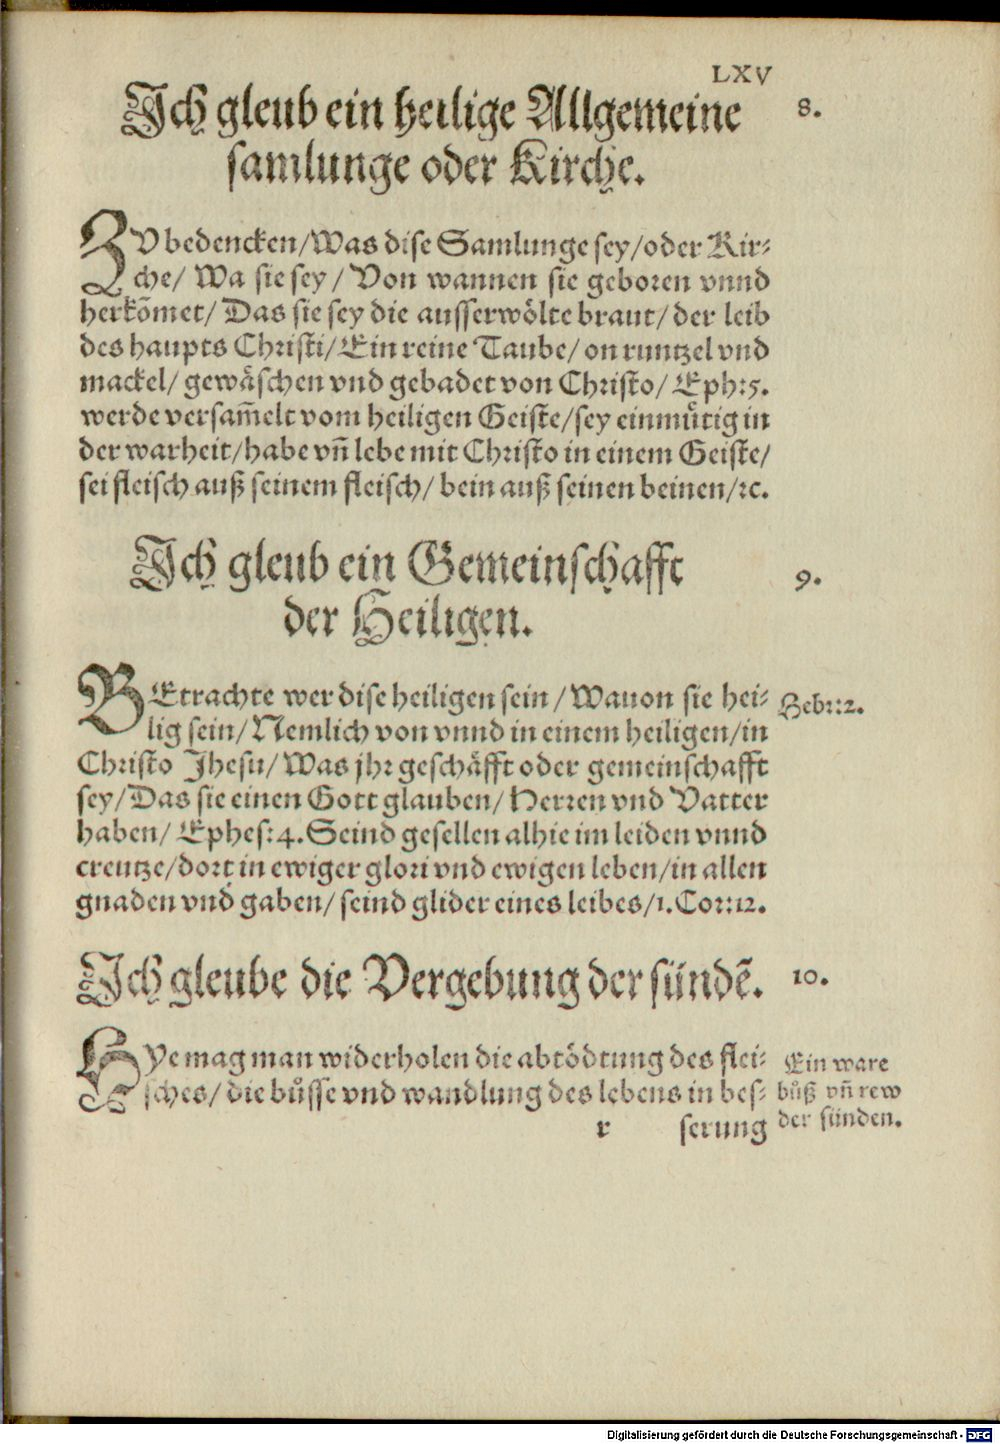 LXV
Ich gleub ein heilige Allgemeine
8.
samlunge oder Kirche.
ZV bedencken/Was dise Samlunge sey/oder Kir-
che/ Wa sie sey/ Von wannen sie geboren vnnd
herkõmet/ Das sie sey die ausserwölte braut/ der leib
des haupts Christi/ Ein reine Taube/ on runtzel vnd
mackel/ gewäschen vnd gebadet von Christo/ Eph:5.
werde versam̃elt vom heiligen Geiste/sey einmuͤtig in
der warheit/habe vñ lebe mit Christo in einem Geiste/
sei fleisch auß seinem fleisch/ bein auß seinen beinen/ꝛc.
Ich gleub ein Gemeinschafft
9.
der Heiligen.
BEtrachte wer dise heiligen sein/ Wauon sie hei-
Hebr:2.
lig sein/ Nemlich von vnnd in einem heiligen/in
Christo Jhesu/ Was jhr geschäfft oder gemeinschafft
sey/Das sie einen Gott glauben/ Herren vnd Vatter
haben/ Ephes:4. Seind gesellen alhie im leiden vnnd
creutze/dort in ewiger glori vnd ewigen leben/in allen
gnaden vnd gaben/ seind glider eines leibes/1.Cor:12.
Ich gleube die Vergebung der sündẽ.
10.
HYe mag man widerholen die abtödtung des flei-
sches/ die buͦsse vnd wandlung des lebens in bes-
Ein ware
buͦß vñ rew
der sünden.
r serung
Digitalisierung gefördert durch die Deutsche Forschungsgemeinschaft - DFG